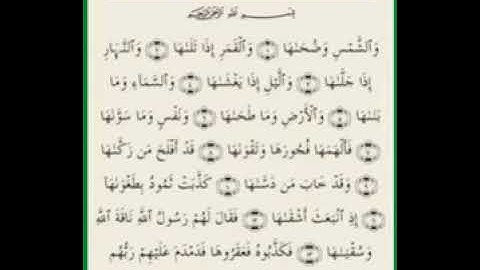 بِسْمِ ٱللَّهِ ٱلرَّحْمَٰنِ ٱلرَّحِيمِ
وَٱلشَّمْسِ وَضُحَىٰهَا ١ وَٱلْقَمَرِ إِذَا تَلَىٰهَا ٢ وَٱلنَّهَارِ
إِذَا جَلَّىٰهَا ٣ وَٱلَّيْلِ إِذَا يَغْشَىٰهَا ٤ وَٱلسَّمَآءِ وَمَا
بَنَىٰهَا ٥ وَٱلْأَرْضِ وَمَا طَحَىٰهَا ٦ وَنَفْسٍ وَمَا سَوَّىٰهَا
٧ فَأَلْهَمَهَا فُجُورَهَا وَتَقْوَىٰهَا ٨ قَدْ أَفْلَحَ مَن زَكَّىٰهَا
٩ وَقَدْ خَابَ مَن دَسَّىٰهَا ١٠ كَذَّبَتْ ثَمُودُ بِطَغْوَىٰهَآ
١١ إِذِ ٱنۢبَعَثَ أَشْقَىٰهَا ١٢ فَقَالَ لَهُمْ رَسُولُ ٱللَّهِ نَاقَةَ ٱللَّهِ
وَسُقْيَٰهَا ١٣ فَكَذَّبُوهُ فَعَقَرُوهَا فَدَمْدَمَ عَلَيْهِمْ رَبُّهُم